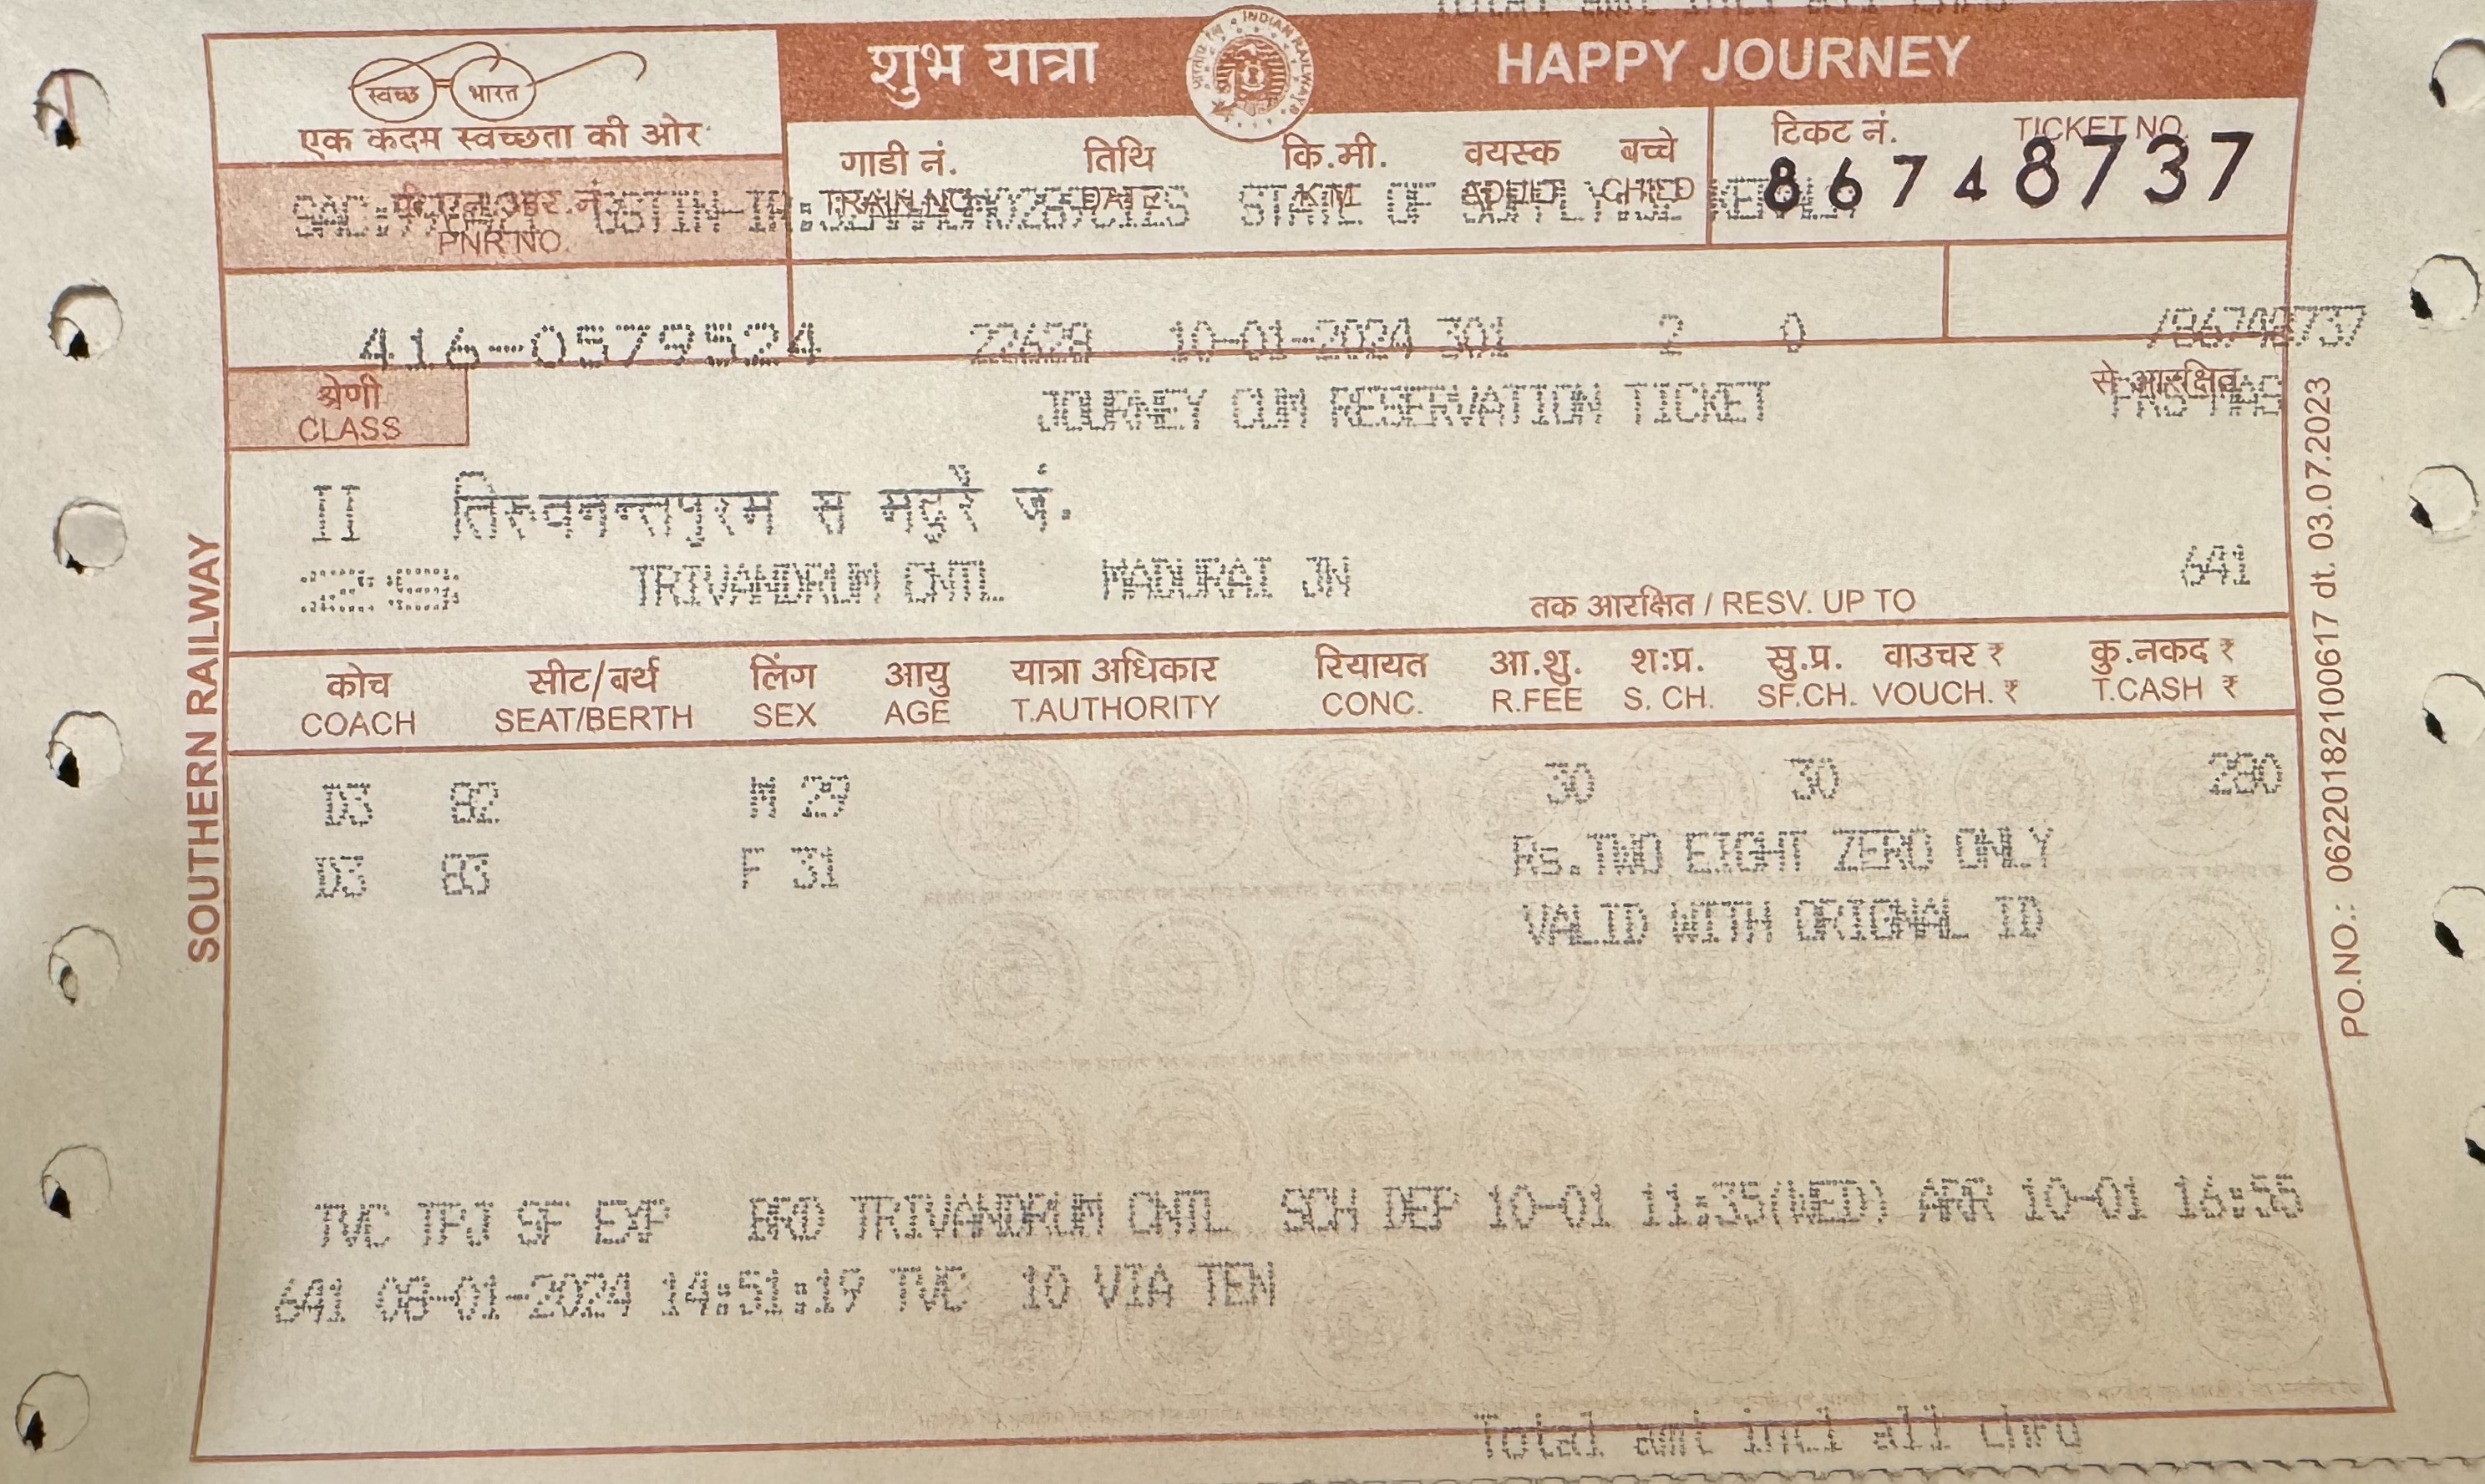 स्वच्छ भारत
एक कदम स्वच्छता की ओर
शुभ यात्रा HAPPY JOURNEY
INDIAN RAILWAYS
गाडी नं. तिथि कि.मी. वयस्क बच्चे टिकट नं. TICKET NO.
86748737
पी.एन.आर.नं. TRAIN NO. DATE KM ADULT CHILD
PNR NO.
STATE OF SUPPLY
22628 10-01-2024 301 2 0 786748737
श्रेणी JOURNEY CUM RESERVATION TICKET से आरक्षित
CLASS
II तिरुवनन्तपुरम स मदुरै जं.
TRIVANDRUM CNTL MADURAI JN
तक आरक्षित / RESV. UP TO
कोच सीट/बर्थ लिंग आयु यात्रा अधिकार रियायत आ.शु. श:प्र. सु.प्र. वाउचर ₹ कु.नकद ₹
COACH SEAT/BERTH SEX AGE T.AUTHORITY CONC. R.FEE S. CH. SF.CH. VOUCH. ₹ T.CASH ₹
D3 82 M 29 30 30 280
D3 83 F 31 Rs. TWO EIGHT ZERO ONLY
VALID WITH ORIGNAL ID
TVC TPJ SF EXP BRD TRIVANDRUM CNTL DEP 10-01 11:35(WED) ARR 10-01
08-01-2024 TVC VIA TEN
Total amt incl all chrg
SOUTHERN RAILWAY
PO.NO.: 06220182100617 dt. 03.07.2023